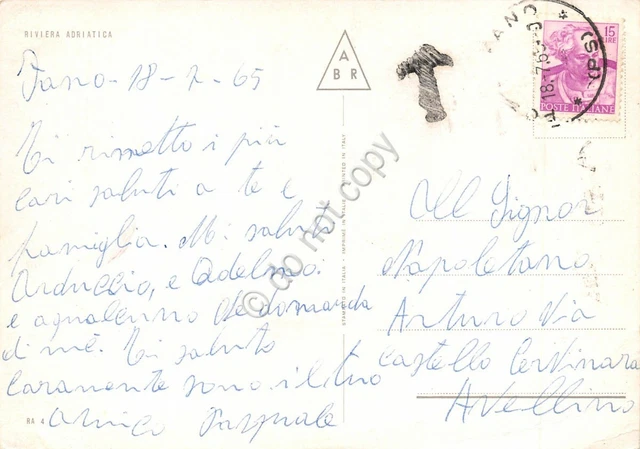 RIVIERA ADRIATICA
Fano - 18-7-65
Ti rimetto i più
cari saluti a te e
famiglia. Mi saluti
Arduccio, e Adelmo.
e aqualcuno che domanda
di mè. Ti saluto
caramente sono il tuo
amico Pasquale
RA 4
A
B R
STAMPATO IN ITALIA - IMPRIMÉ EN ITALIE - PRINTED IN ITALY
T
FANO
(PS)
18.7.65
15
LIRE
POSTE ITALIANE
All Signor
Napoletano
Arturo Via
Castello Cervinara
Avellino
© do not copy